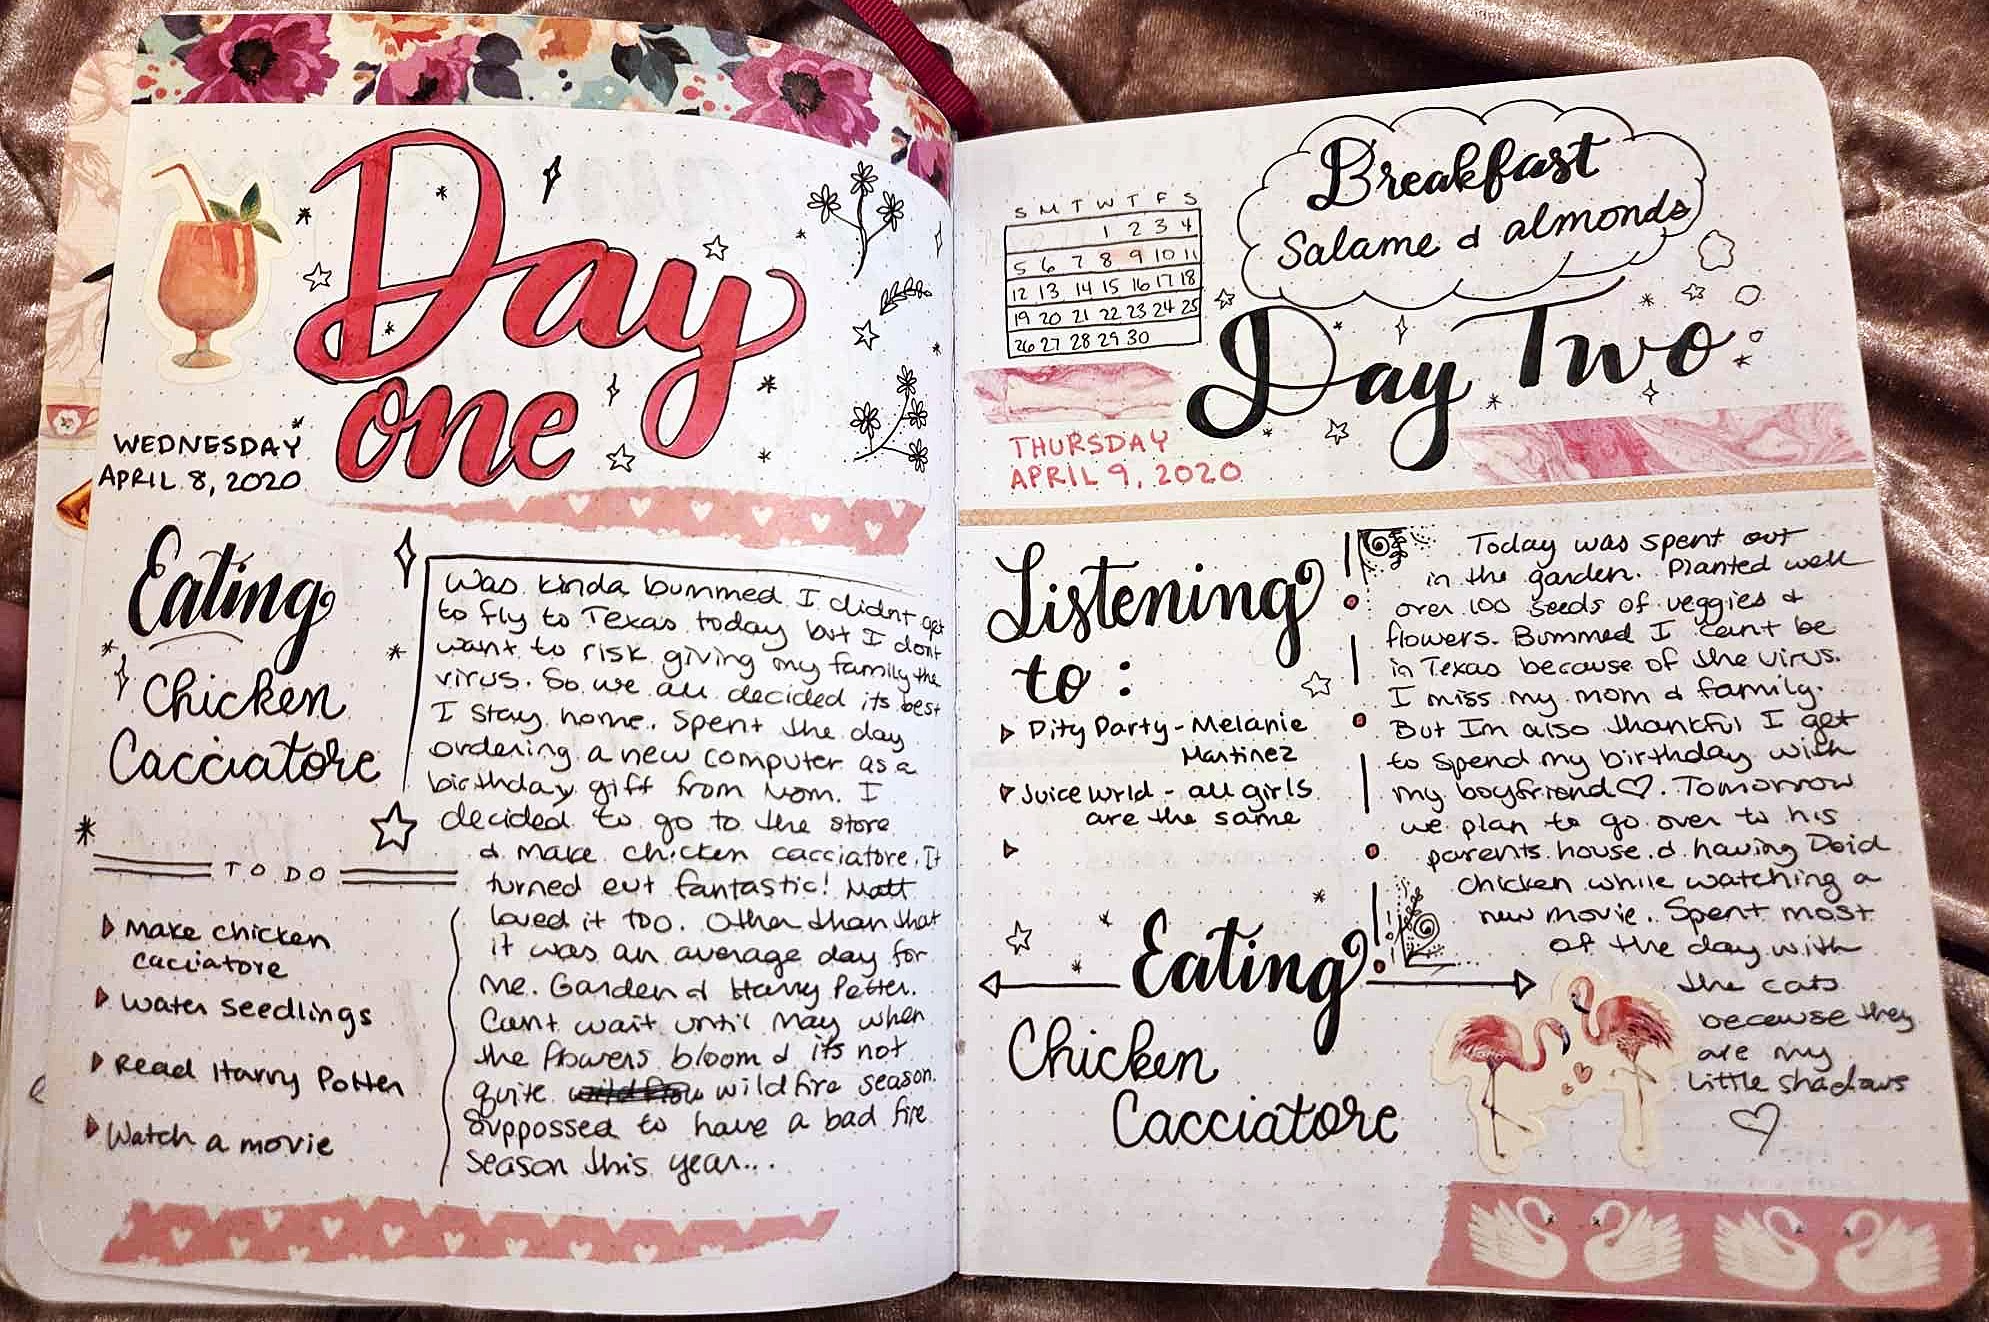 Day
one
WEDNESDAY
APRIL 8, 2020
Eating
Chicken
Cacciatore
TO DO
Make chicken
cacciatore
Water seedlings
Read Harry Potter
Watch a movie
Was kinda bummed I didnt get
to fly to Texas today but I dont
want to risk giving my family the
virus. So we all decided its best
I stay home. Spent the day
ordering a new computer as a
birthday gift from Mom. I
decided to go to the store
& make chicken cacciatore. It
turned out fantastic! Matt
loved it too. Other than that
it was an average day for
me. Garden & Harry Potter.
Cant wait until May when
the flowers bloom & its not
quite wildfire season.
Suppossed to have a bad fire
season this year...
Breakfast
Salame & almonds
S M T W T F S
1 2 3 4
5 6 7 8 9 10 11
12 13 14 15 16 17 18
19 20 21 22 23 24 25
26 27 28 29 30
Day Two
THURSDAY
APRIL 9, 2020
Listening
to:
Pity Party - Melanie
Martinez
Juice wrld - all girls
are the same
Eating
Chicken
Cacciatore
Today was spent out
in the garden. Planted well
over 100 seeds of veggies &
flowers. Bummed I cant be
in Texas because of the virus.
I miss my mom & family.
But Im also thankful I get
to spend my birthday with
my boyfriend♡. Tomorrow
we plan to go over to his
parents house & having
chicken while watching a
new movie. Spent most
of the day with
the cats
because they
are my
little shadows